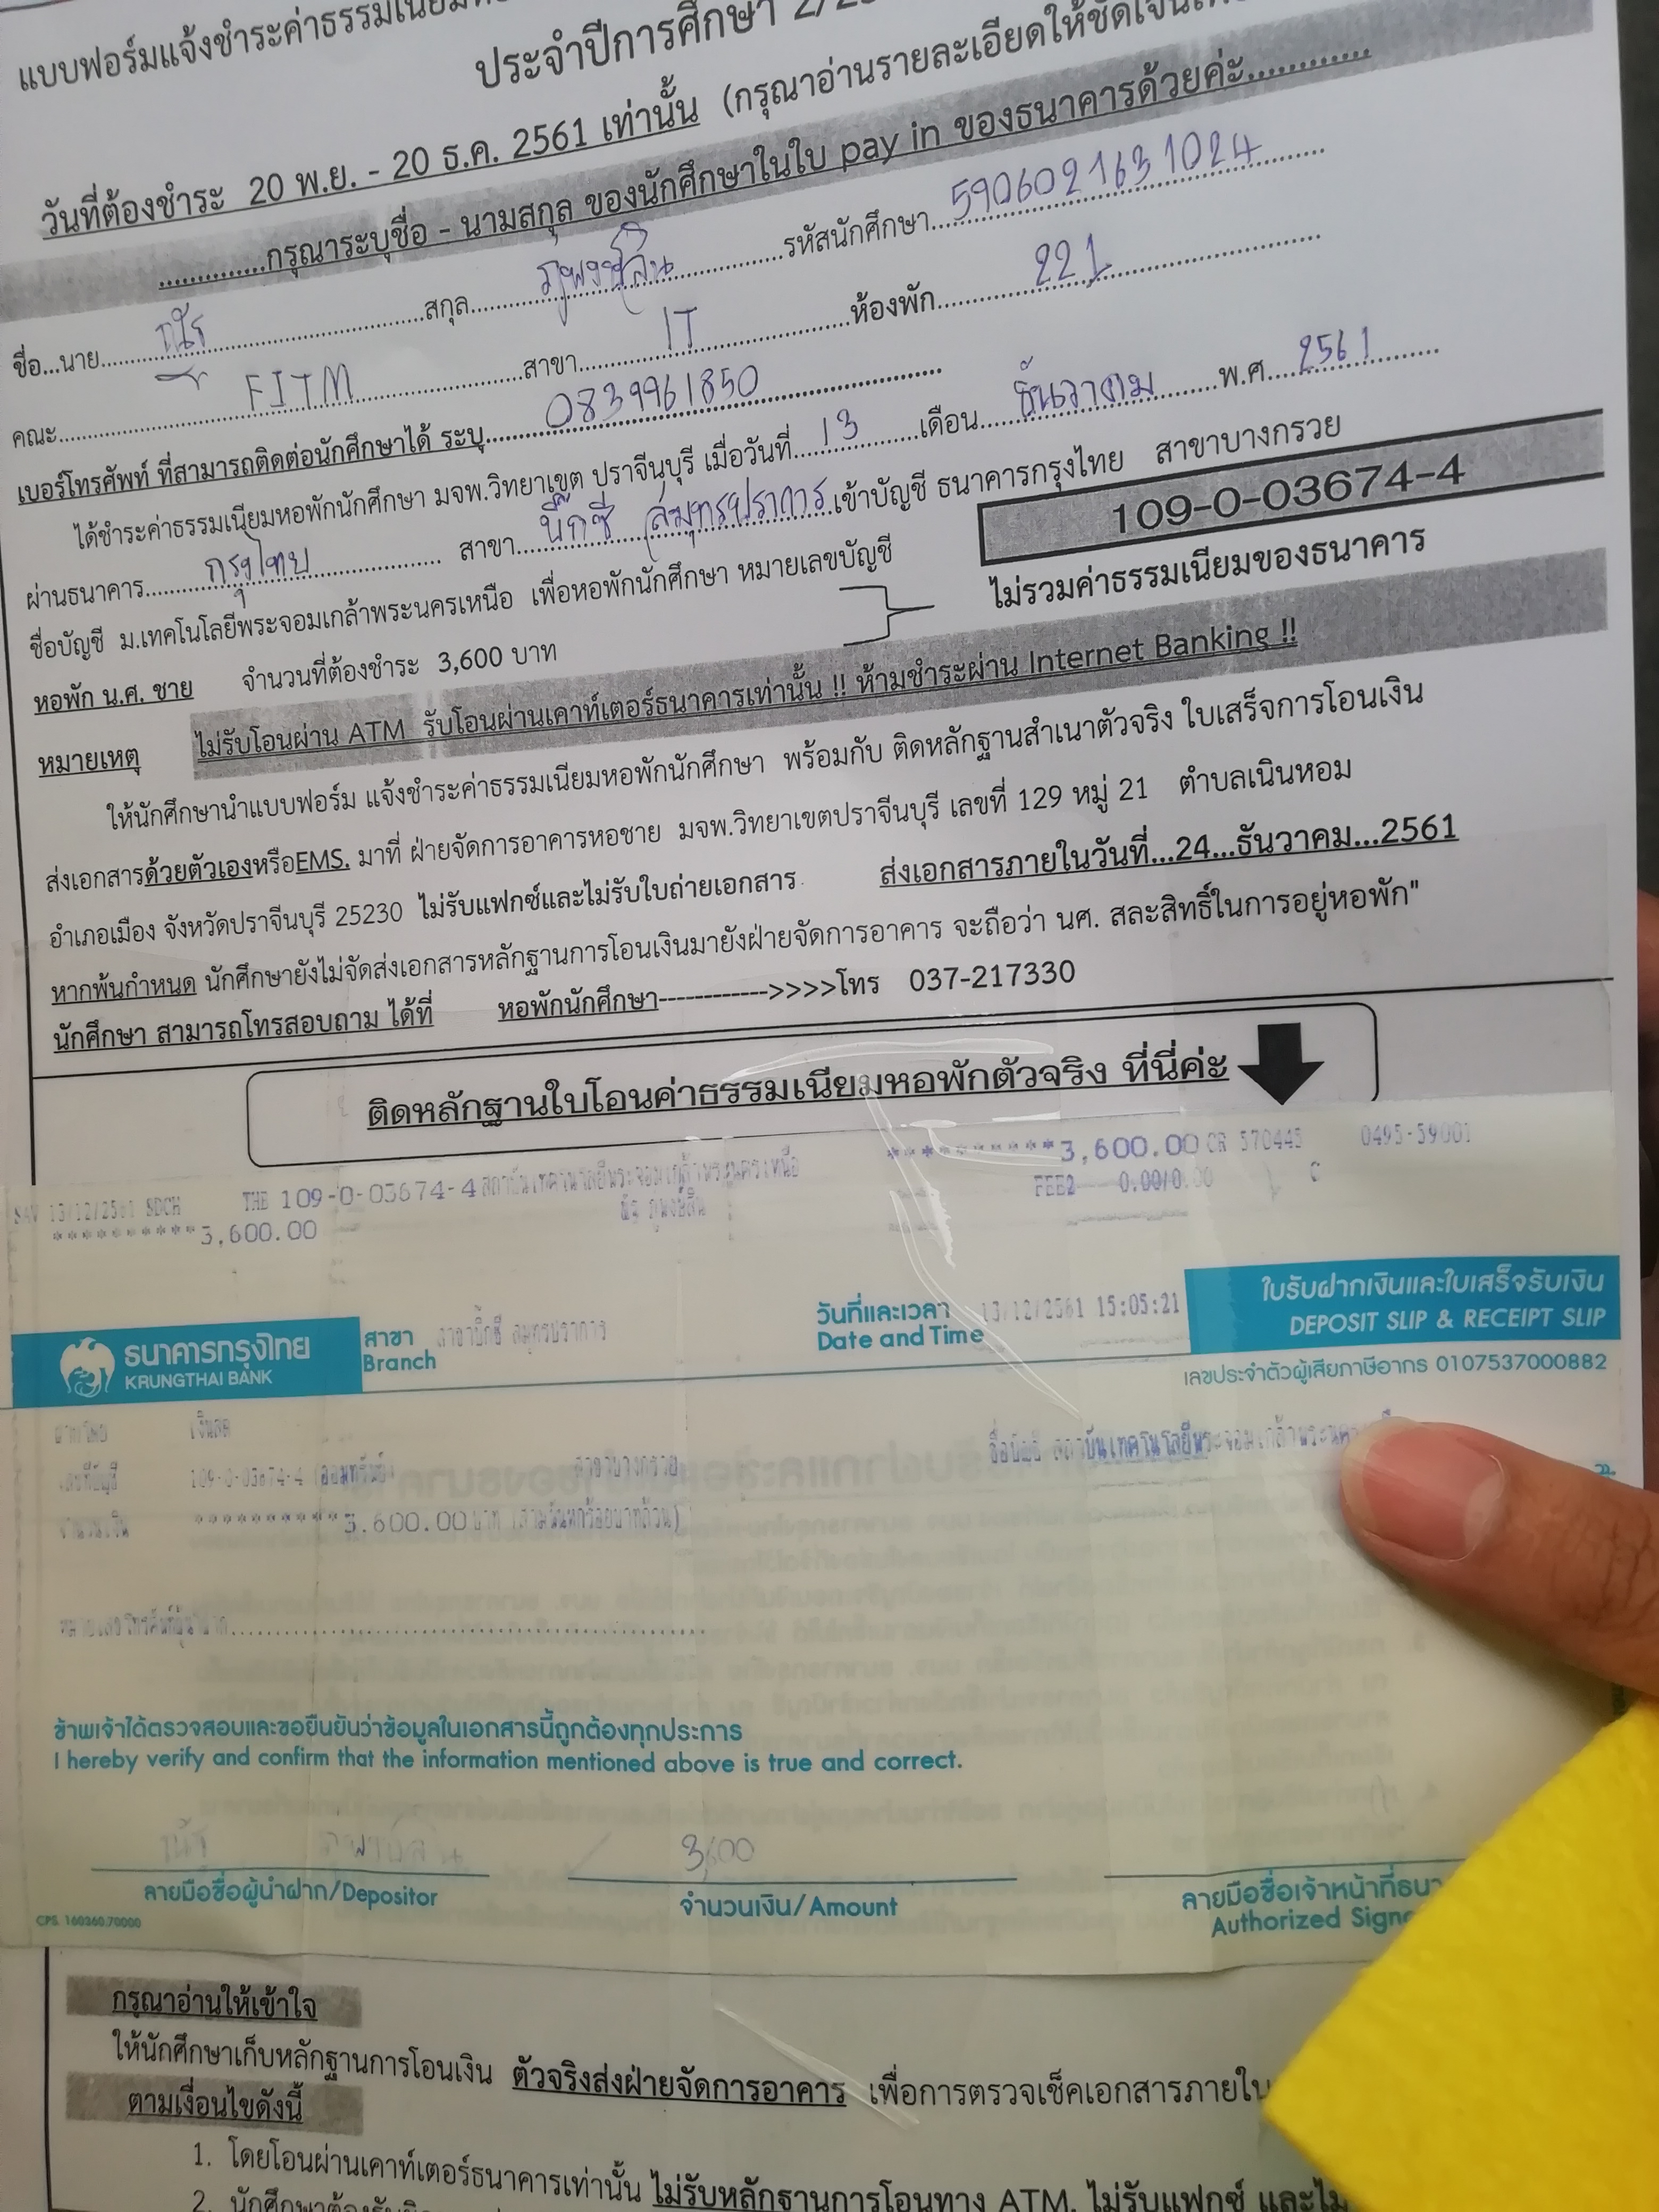 แบบฟอร์มแจ้งชำระค่าธรรมเนียม
ประจำปีการศึกษา 2/25
วันที่ต้องชำระ 20 พ.ย. - 20 ธ.ค. 2561 เท่านั้น (กรุณาอ่านรายละเอียดให้ชัดเจน
.............กรุณาระบุชื่อ - นามสกุล ของนักศึกษาในใบ pay in ของธนาคารด้วยค่ะ.............
ชื่อ...นาย.......... สกุล.......... รหัสนักศึกษา...5906021631024
คณะ...FITM...สาขา...IT...ห้องพัก...221
เบอร์โทรศัพท์ ที่สามารถติดต่อนักศึกษาได้ ระบุ...0839961850
ได้ชำระค่าธรรมเนียมหอพักนักศึกษา มจพ.วิทยาเขต ปราจีนบุรี เมื่อวันที่...13...เดือน...ธันวาคม...พ.ศ...2561
ผ่านธนาคาร...กรุงไทย... สาขา...บิ๊กซี สมุทรปราการ...เข้าบัญชี ธนาคารกรุงไทย สาขาบางกรวย
ชื่อบัญชี ม.เทคโนโลยีพระจอมเกล้าพระนครเหนือ เพื่อหอพักนักศึกษา หมายเลขบัญชี 109-0-03674-4
หอพัก น.ศ. ชาย จำนวนที่ต้องชำระ 3,600 บาท ไม่รวมค่าธรรมเนียมของธนาคาร
หมายเหตุ ไม่รับโอนผ่าน ATM รับโอนผ่านเคาท์เตอร์ธนาคารเท่านั้น !! ห้ามชำระผ่าน Internet Banking !!
ให้นักศึกษานำแบบฟอร์ม แจ้งชำระค่าธรรมเนียมหอพักนักศึกษา พร้อมกับ ติดหลักฐานสำเนาตัวจริง ใบเสร็จการโอนเงิน
ส่งเอกสารด้วยตัวเองหรือEMS. มาที่ ฝ่ายจัดการอาคารหอชาย มจพ.วิทยาเขตปราจีนบุรี เลขที่ 129 หมู่ 21 ตำบลเนินหอม
อำเภอเมือง จังหวัดปราจีนบุรี 25230 ไม่รับแฟกซ์และไม่รับใบถ่ายเอกสาร ส่งเอกสารภายในวันที่...24...ธันวาคม...2561
หากพ้นกำหนด นักศึกษายังไม่จัดส่งเอกสารหลักฐานการโอนเงินมายังฝ่ายจัดการอาคาร จะถือว่า นศ. สละสิทธิ์ในการอยู่หอพัก"
นักศึกษา สามารถโทรสอบถาม ได้ที่ หอพักนักศึกษา------------>>>>โทร 037-217330
ติดหลักฐานใบโอนค่าธรรมเนียมหอพักตัวจริง ที่นี่ค่ะ
SAV 13/12/2561 SDCH THB 109-0-03674-4 สถาบันเทคโนโลยีพระจอมเกล้าพระนครเหนือ **********3,600.00 CR 570445 0495-59001
**********3,600.00 FEE2 0.00/0.00 C
ธนาคารกรุงไทย
KRUNGTHAI BANK
สาขา
Branch
สาขาบิ๊กซี สมุทรปราการ
วันที่และเวลา
Date and Time
13/12/2561 15:05:21
ใบรับฝากเงินและใบเสร็จรับเงิน
DEPOSIT SLIP & RECEIPT SLIP
เลขประจำตัวผู้เสียภาษีอากร 0107537000882
ฝากโดย เงินสด ชื่อบัญชี สถาบันเทคโนโลยีพระจอมเกล้าพระนคร
เลขที่บัญชี 109-0-03674-4 (ออมทรัพย์) สาขาบางกรวย
จำนวนเงิน **********3,600.00 บาท (สามพันหกร้อยบาทถ้วน)
หมายเลขโทรศัพท์ผู้นำฝาก
ข้าพเจ้าได้ตรวจสอบและขอยืนยันว่าข้อมูลในเอกสารนี้ถูกต้องทุกประการ
I hereby verify and confirm that the information mentioned above is true and correct.
3,600
ลายมือชื่อผู้นำฝาก/Depositor
จำนวนเงิน/Amount
ลายมือชื่อเจ้าหน้าที่ธนา
Authorized Signa
CPS. 160360.70000
กรุณาอ่านให้เข้าใจ
ให้นักศึกษาเก็บหลักฐานการโอนเงิน ตัวจริงส่งฝ่ายจัดการอาคาร เพื่อการตรวจเช็คเอกสารภายใน
ตามเงื่อนไขดังนี้
1. โดยโอนผ่านเคาท์เตอร์ธนาคารเท่านั้น ไม่รับหลักฐานการโอนทาง ATM, ไม่รับแฟกซ์ และไม่
2. นักศึกษาต้อง